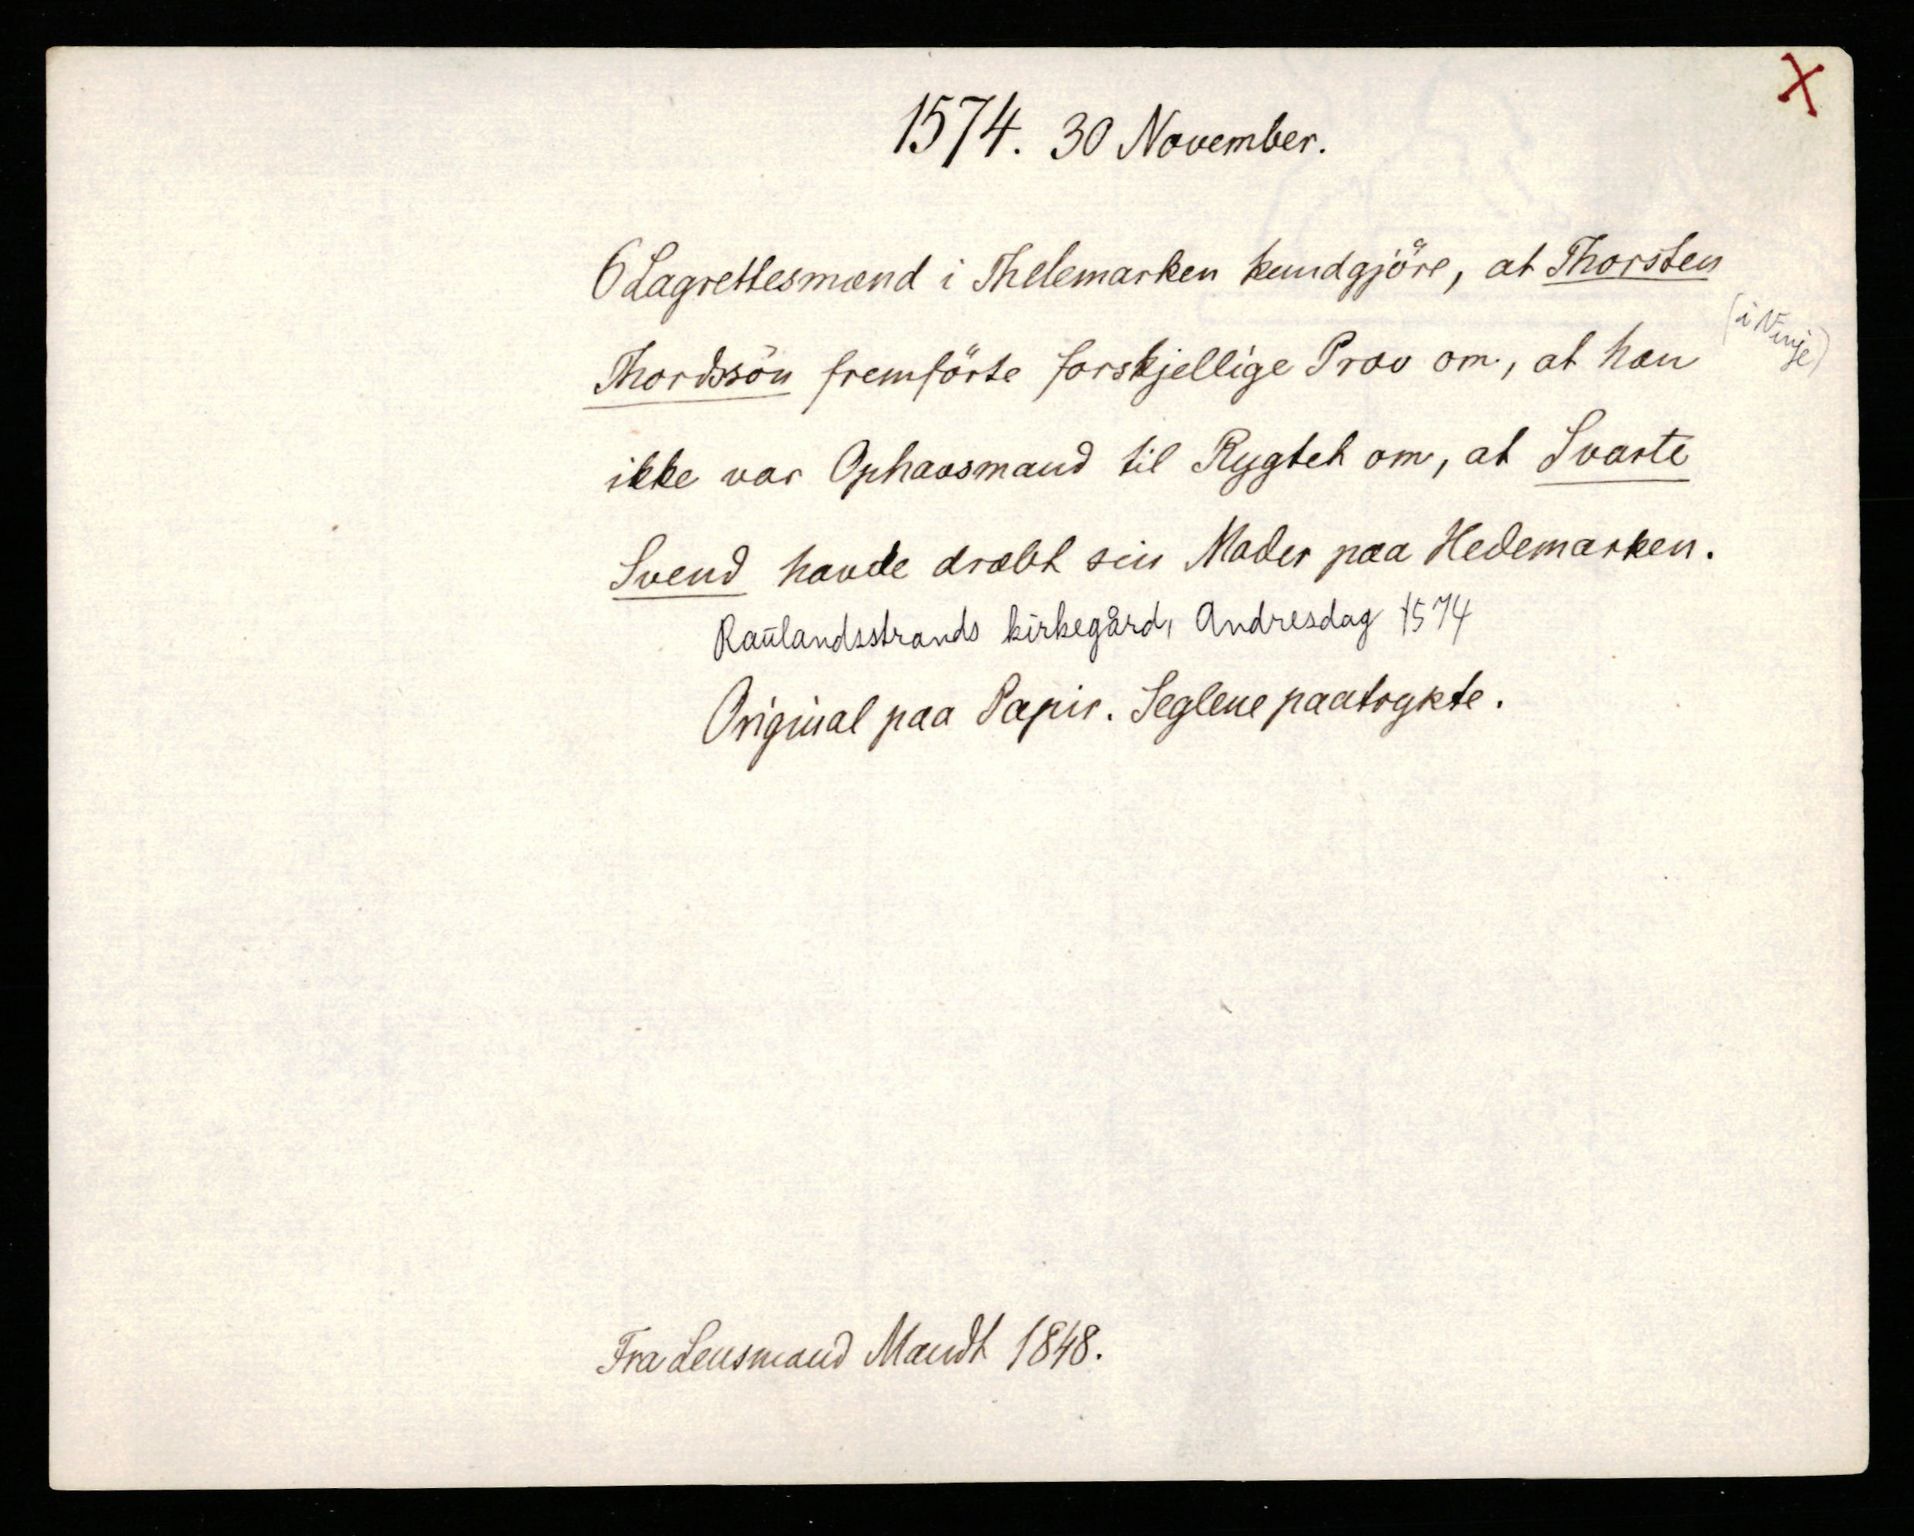 X
1574. 30 November.
6 Lagrettesmænd i Thelemarken kundgjöre, at Thorsten
(i Vinje)
Thordssön fremförte forskjellige Prov om, at han
ikke var Ophavsmand til Rygtet om, at Svarte
Svend havde dræbt sin Moder paa Hedemarken.
Raulandsstrands kirkegård, Andresdag 1574
Original paa Papir. Seglene paatrykte.
Fra Lensmand Mandt 1848.